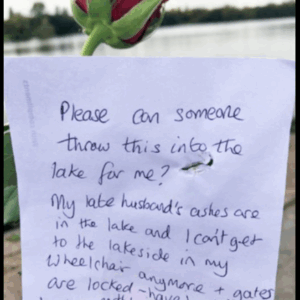 Please can someone
throw this into the
lake for me?
My late husband's ashes are
in the lake and I can't get
to the lakeside in my
wheelchair anymore + gates
are locked - have